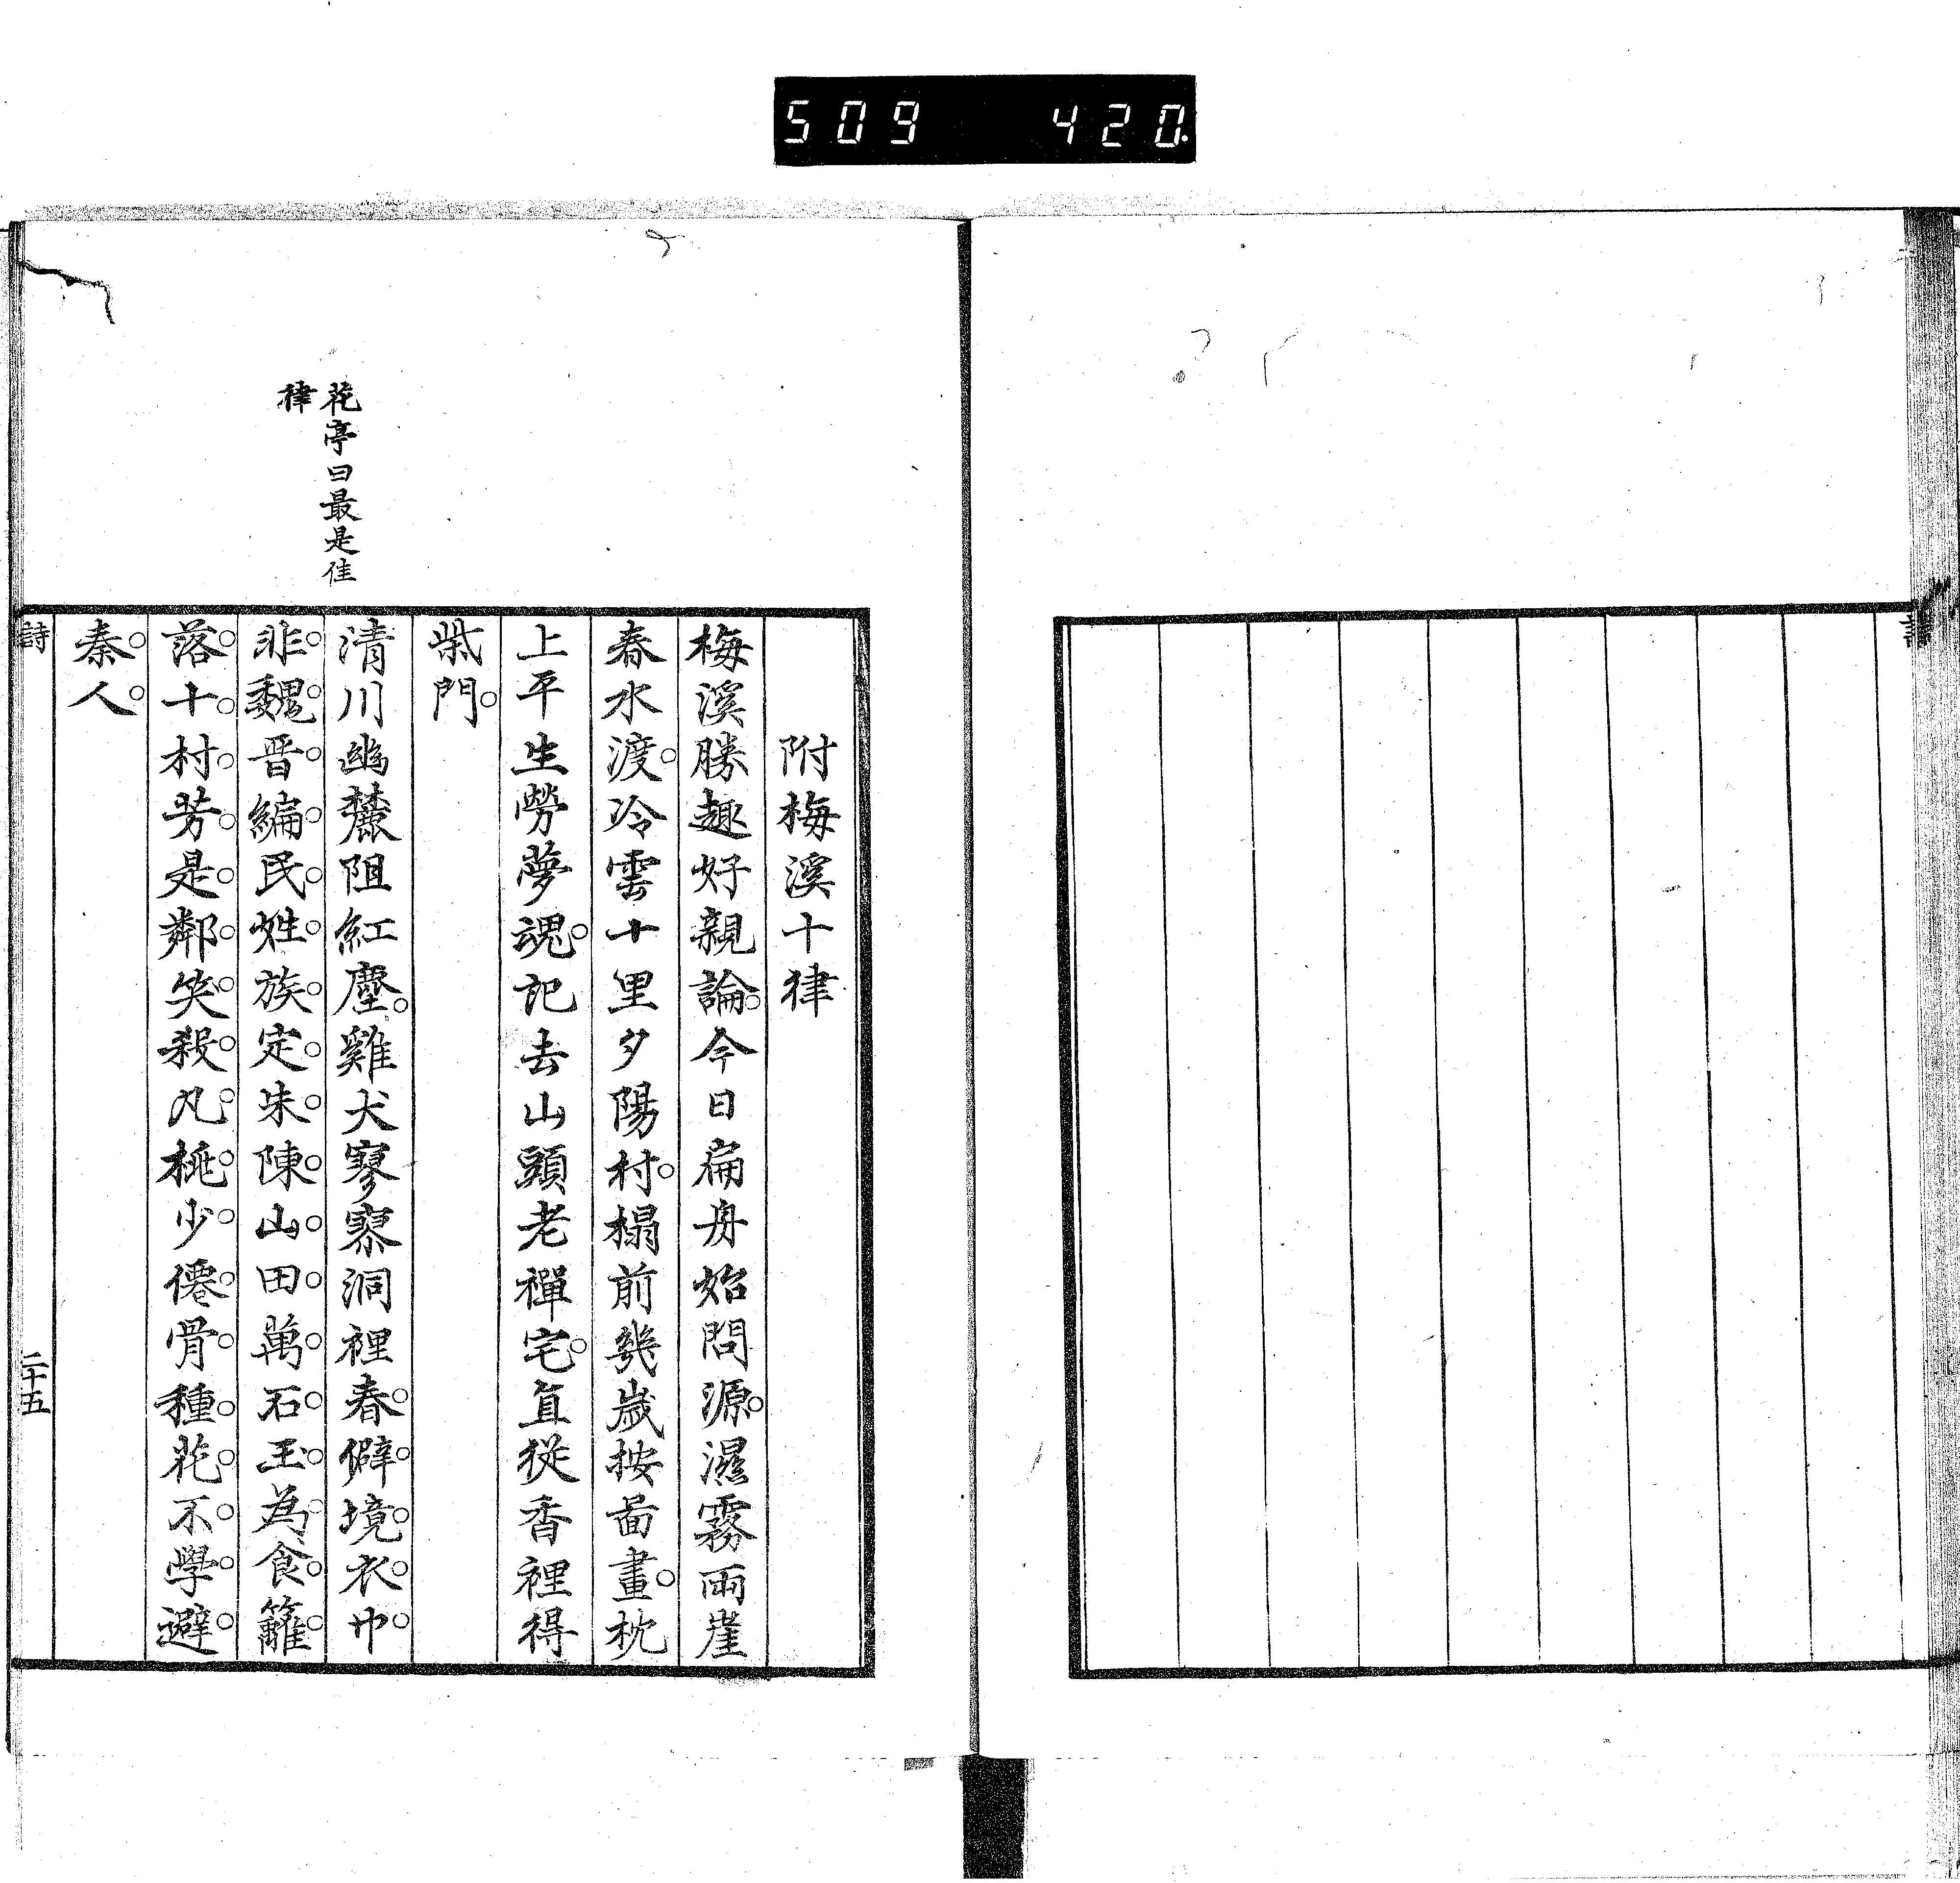 509 420
附梅溪十律
梅溪勝趣好親論今日扁舟始問源濕霧雨崖
春水渡冷雲十里夕陽村榻前幾歲按啚畫枕
上平生勞夢魂記去山頭老禪宅直從香裡得
柴門
清川幽麓阻紅塵雞犬寥寥洞裡春僻境衣巾
非魏晋編民姓族定朱陳山田萬石玉為食籬
落十村芳是鄰笑殺凡桃少僊骨種花不學避
秦人
花亭曰最是佳
律
詩
二十五